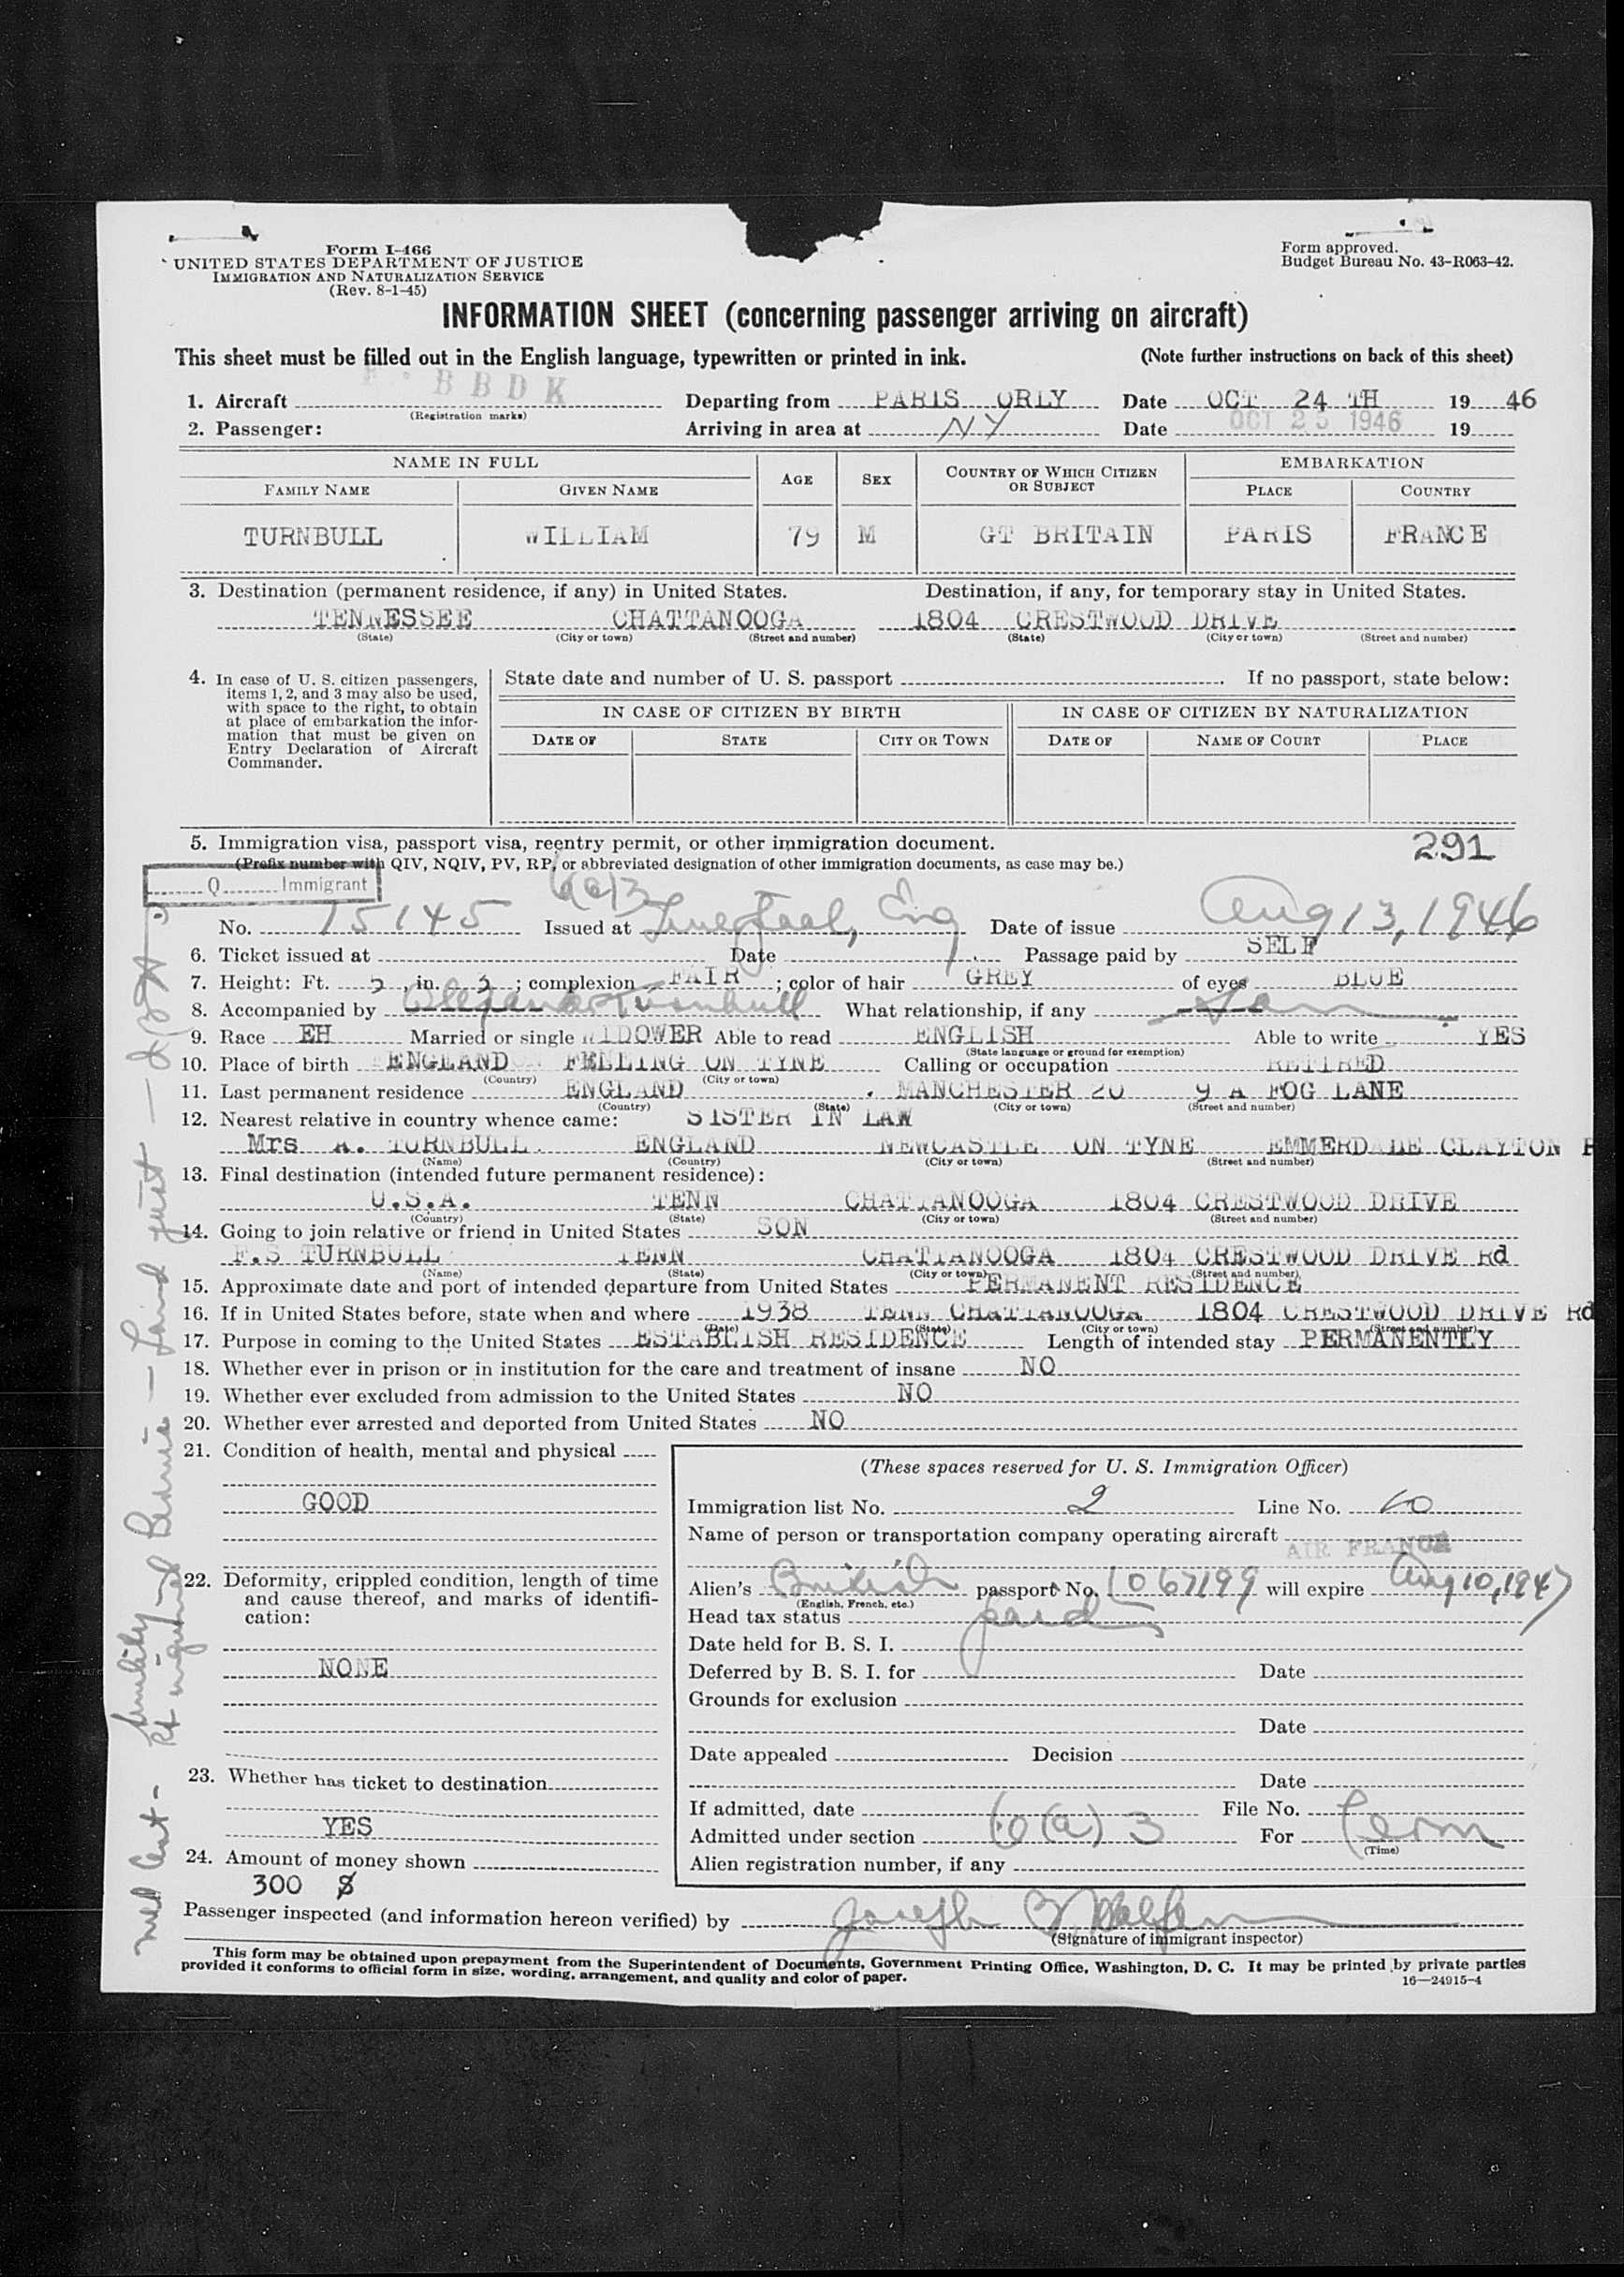 Form I-466
UNITED STATES DEPARTMENT OF JUSTICE
IMMIGRATION AND NATURALIZATION SERVICE
(Rev. 8-1-45)
Form approved.
Budget Bureau No. 43-R063-42.
INFORMATION SHEET (concerning passenger arriving on aircraft)
This sheet must be filled out in the English language, typewritten or printed in ink. (Note further instructions on back of this sheet)
1. Aircraft BBDK Departing from PARIS ORLY Date OCT 24 TH 19 46
(Registration marks)
2. Passenger: Arriving in area at NY Date OCT 25 1946 19
NAME IN FULL AGE SEX COUNTRY OF WHICH CITIZEN OR SUBJECT EMBARKATION
FAMILY NAME GIVEN NAME PLACE COUNTRY
TURNBULL WILLIAM 79 M GT BRITAIN PARIS FRANCE
3. Destination (permanent residence, if any) in United States. Destination, if any, for temporary stay in United States.
TENNESSEE CHATTANOOGA 1804 CRESTWOOD DRIVE
(State) (City or town) (Street and number) (State) (City or town) (Street and number)
4. In case of U. S. citizen passengers,
items 1, 2, and 3 may also be used,
with space to the right, to obtain
at place of embarkation the infor-
mation that must be given on
Entry Declaration of Aircraft
Commander.
State date and number of U. S. passport . If no passport, state below:
IN CASE OF CITIZEN BY BIRTH IN CASE OF CITIZEN BY NATURALIZATION
DATE OF STATE CITY OR TOWN DATE OF NAME OF COURT PLACE
5. Immigration visa, passport visa, reentry permit, or other immigration document. 291
(Prefix number with QIV, NQIV, PV, RP, or abbreviated designation of other immigration documents, as case may be.)
Q Immigrant
6(a)3
No. 15145 Issued at Liverpool, Eng Date of issue Aug 13, 1946
6. Ticket issued at Date Passage paid by SELF
7. Height: Ft. 5, in. 3; complexion FAIR; color of hair GREY of eyes BLUE
8. Accompanied by Turnbull What relationship, if any
9. Race EH Married or single WIDOWER Able to read ENGLISH Able to write YES
(State language or ground for exemption)
10. Place of birth ENGLAND FELLING ON TYNE Calling or occupation RETIRED
(Country) (City or town)
11. Last permanent residence ENGLAND . MANCHESTER 20 9 A FOG LANE
(Country) (State) (City or town) (Street and number)
12. Nearest relative in country whence came: SISTER IN LAW
Mrs A. TURNBULL. ENGLAND NEWCASTLE ON TYNE EMMERDALE CLAYTON
(Name) (Country) (City or town) (Street and number)
13. Final destination (intended future permanent residence):
U.S.A. TENN CHATTANOOGA 1804 CRESTWOOD DRIVE
(Country) (State) (City or town) (Street and number)
14. Going to join relative or friend in United States SON
F.S TURNBULL TENN CHATTANOOGA 1804 CRESTWOOD DRIVE Rd
(Name) (State) (City or town) (Street and number)
15. Approximate date and port of intended departure from United States PERMANENT RESIDENCE
16. If in United States before, state when and where 1938 TENN CHATTANOOGA 1804 CRESTWOOD DRIVE Rd
(Date) (State) (City or town) (Street and number)
17. Purpose in coming to the United States ESTABLISH RESIDENCE Length of intended stay PERMANENTLY
18. Whether ever in prison or in institution for the care and treatment of insane NO
19. Whether ever excluded from admission to the United States NO
20. Whether ever arrested and deported from United States NO
21. Condition of health, mental and physical
GOOD
22. Deformity, crippled condition, length of time
and cause thereof, and marks of identifi-
cation:
NONE
23. Whether has ticket to destination
YES
24. Amount of money shown
300 $
(These spaces reserved for U. S. Immigration Officer)
Immigration list No. 2 Line No. 10
Name of person or transportation company operating aircraft
AIR FRANCE
Alien's British passport No. L 067199 will expire Aug 10, 1947
(English, French, etc.)
Head tax status paid
Date held for B. S. I.
Deferred by B. S. I. for Date
Grounds for exclusion
Date
Date appealed Decision
Date
If admitted, date File No.
Admitted under section 6(a) 3 For Perm
(Time)
Alien registration number, if any
Passenger inspected (and information hereon verified) by Joseph
(Signature of immigrant inspector)
This form may be obtained upon prepayment from the Superintendent of Documents, Government Printing Office, Washington, D. C. It may be printed by private parties
provided it conforms to official form in size, wording, arrangement, and quality and color of paper.
16—24915-4
med Cert- Senility
Rt inguinal Hernia